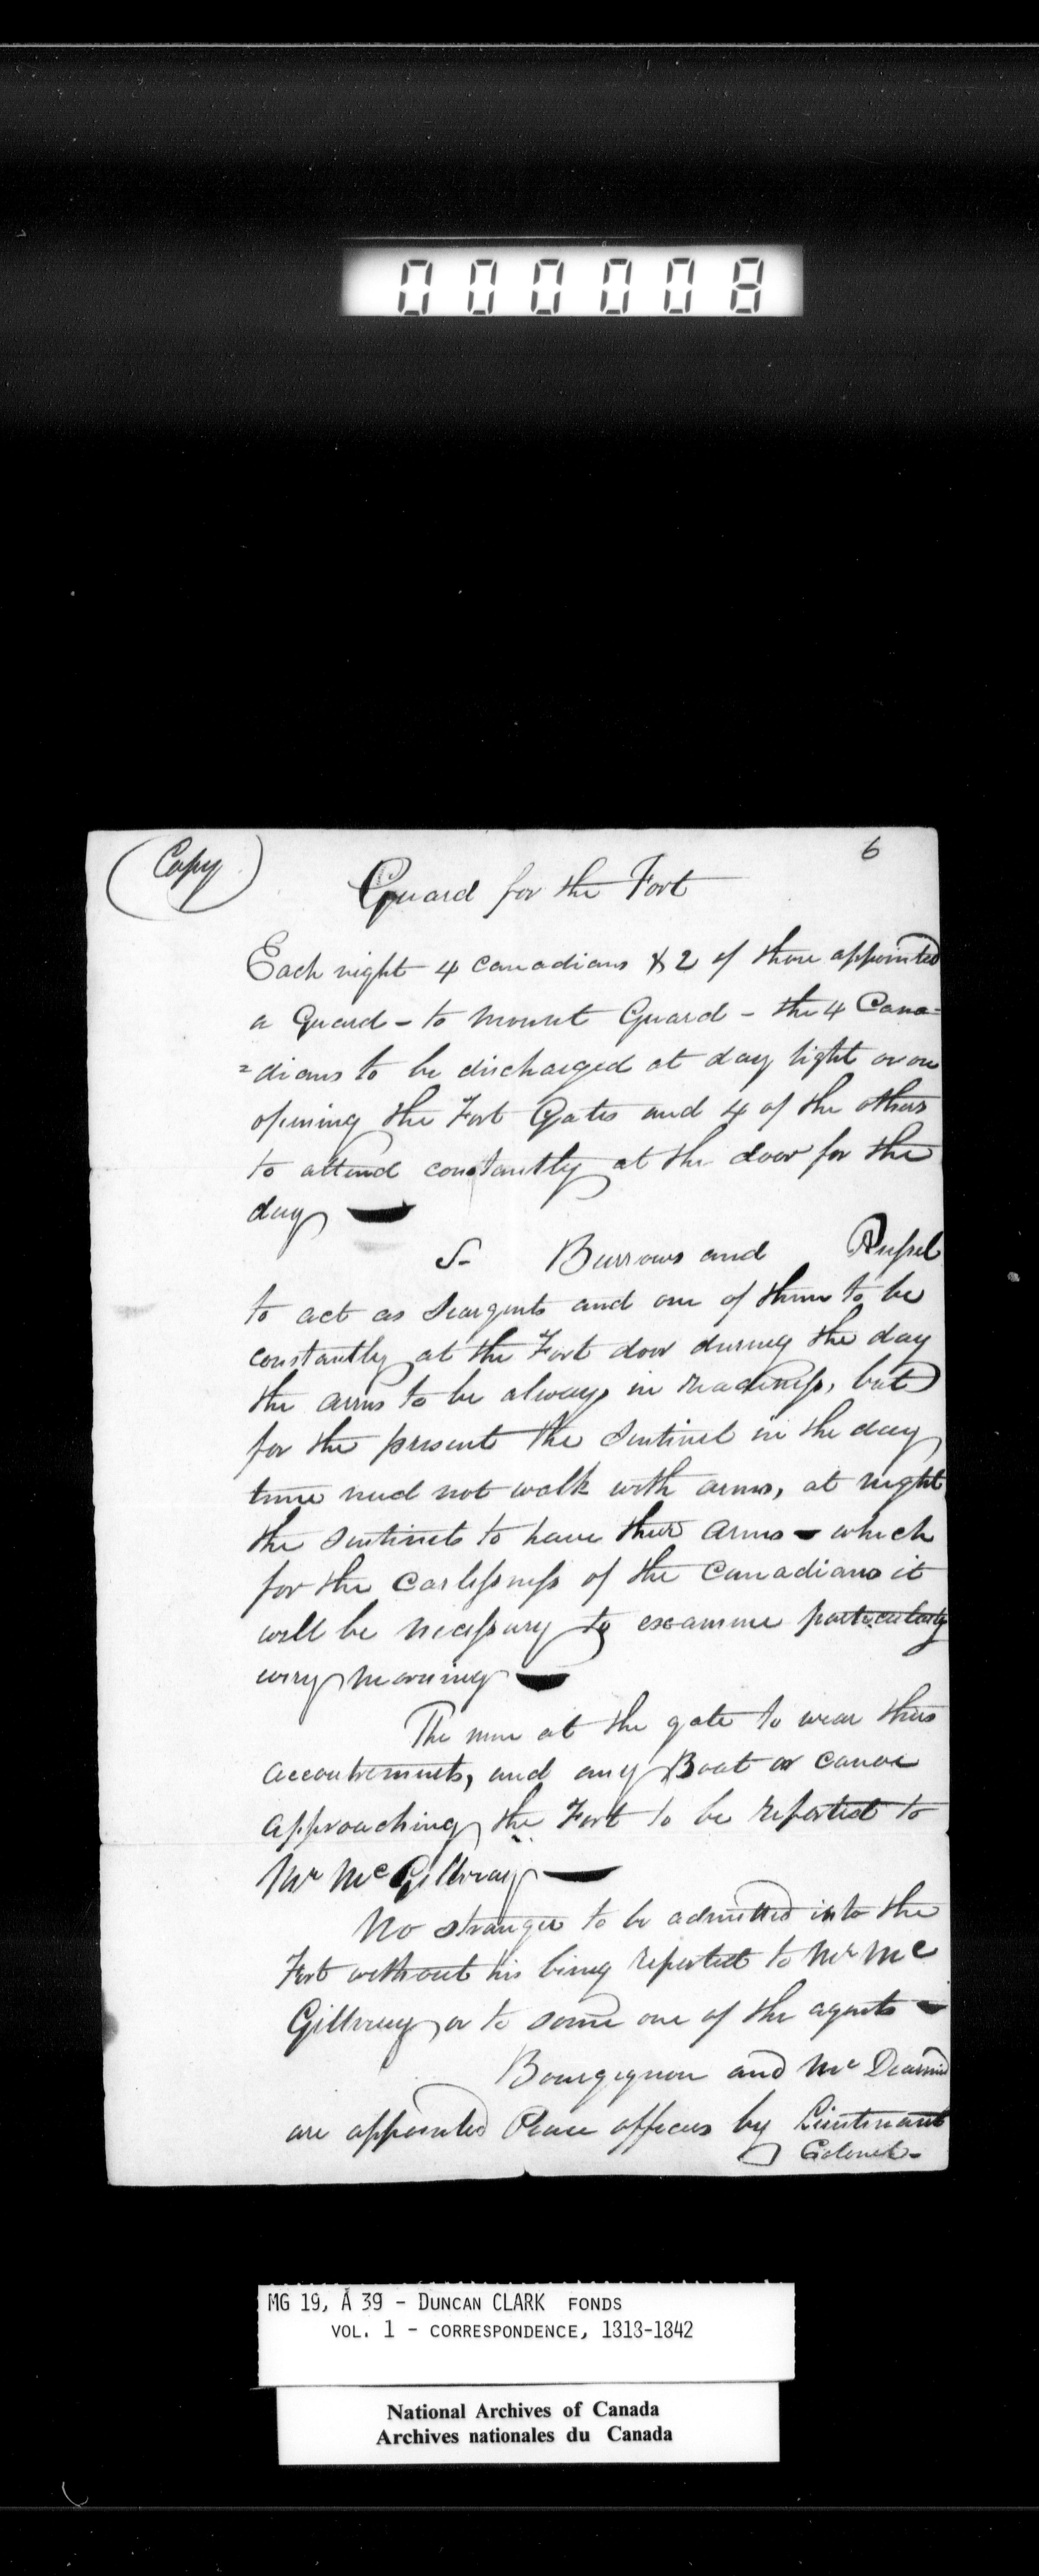 000008
(Copy)
6
Guard for the Fort
Each night 4 Canadians & 2 of those appointed
a Guard - to mount Guard - the 4 Cana=
=dians to be discharged at day light or on
opening the Fort Gates and 4 of the others
to attend constantly at the door for the
day
S- Burrows and Russel
to act as Seargents and one of them to be
constantly at the Fort door during the day
the arms to be always in readiness, but
for the present the Sentinel in the day
time need not walk with arms, at night
the Sentinels to have their arms - which
for the Carlessness of the Canadians it
will be necessary to examine particularly
every morning
The men at the gate to wear their
accoutrements, and any Boat or Canoe
approaching the Fort to be reported to
Mr McGillivray
No stranger to be admitted into the
Fort without his being reported to Mr Mc
Gillivray or to some one of the agents -
Bourgignon and Mc Dearmid
are appointed Peace officers by Lieutenant
Colonel -
MG 19, A 39 - DUNCAN CLARK FONDS
VOL. 1 - CORRESPONDENCE, 1813-1842
National Archives of Canada
Archives nationales du Canada